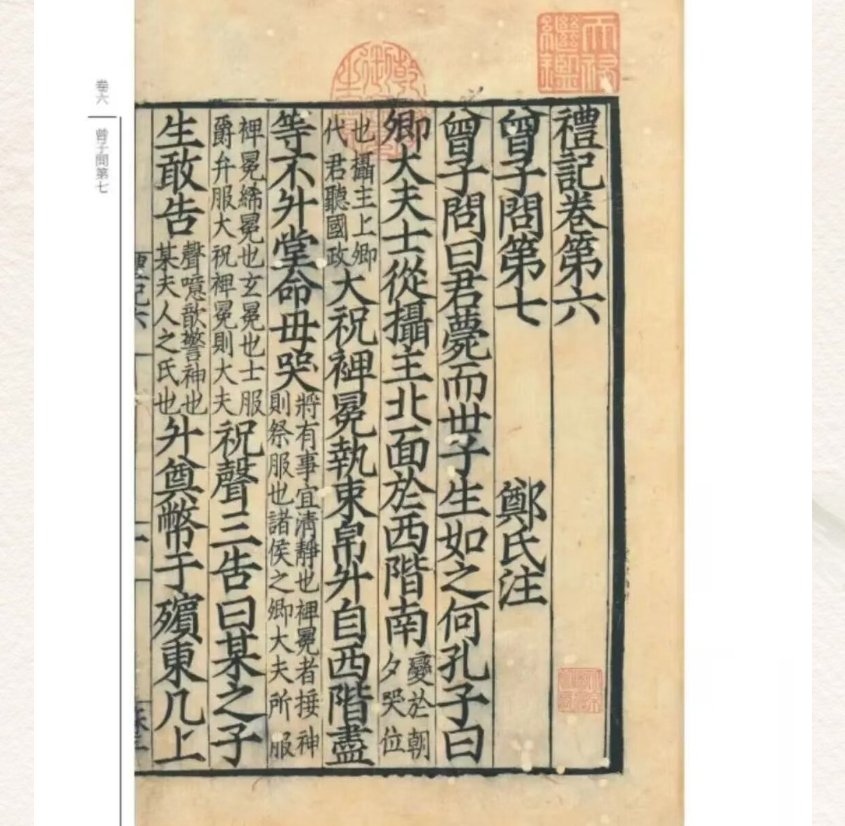 天祿繼鑑
禮記卷第六
曾子問第七 鄭氏注
曾子問曰君薨而世子生如之何孔子曰
卿大夫士從攝主北面於西階南變於朝夕哭位
也攝主上卿代君聽國政大祝裨冕執束帛升自西階盡
等不升堂命毋哭將有事宜清靜也裨冕者接神則祭服也諸侯之卿大夫所服
裨冕絺冕也玄冕也士服爵弁服大祝裨冕則大夫祝聲三告曰某之子
生敢告聲噫歆警神也某夫人之氏也升奠幣于殯東几上
卷六 曾子問第七